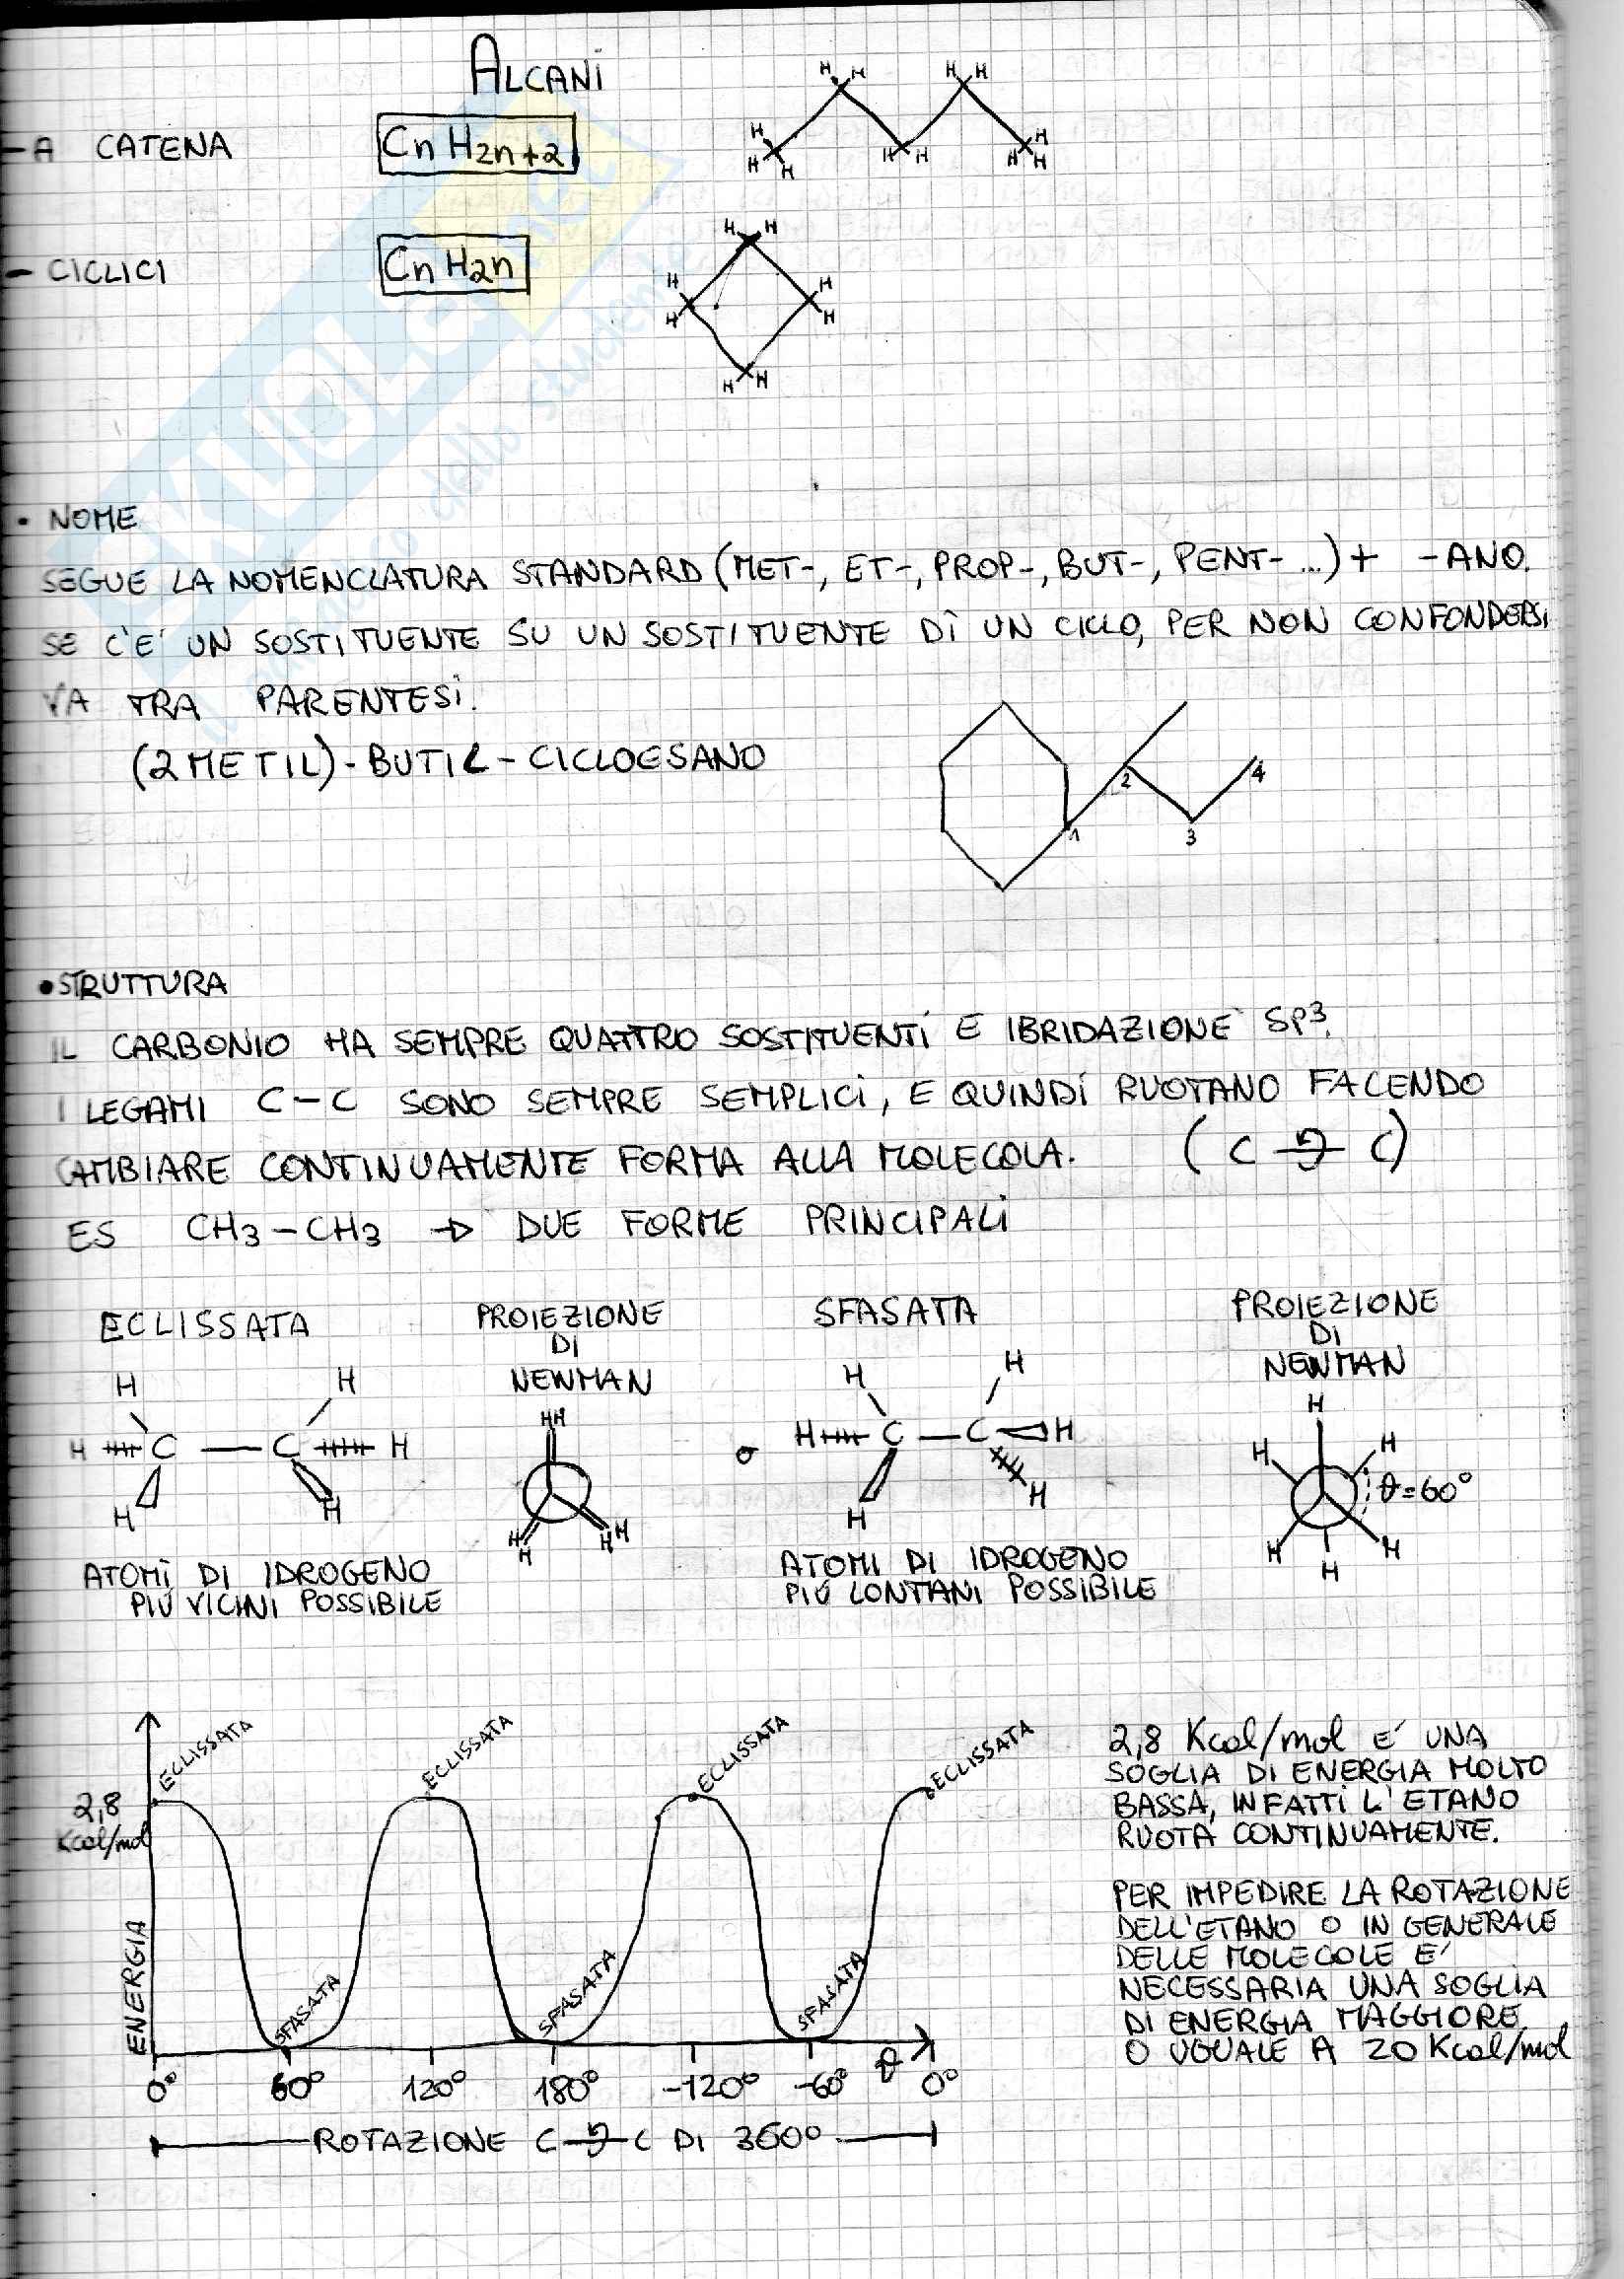 ALCANI
- A CATENA CnH2n+2
H H H H
H H H H H H H H
- CICLICI CnH2n
H H
H H
H H
H H
• NOME
SEGUE LA NOMENCLATURA STANDARD (MET-, ET-, PROP-, BUT-, PENT- ...) + -ANO.
SE C'E' UN SOSTITUENTE SU UN SOSTITUENTE DI UN CICLO, PER NON CONFONDERSI
VA TRA PARENTESI.
(2METIL)-BUTIL-CICLOESANO
1 2 3 4
• STRUTTURA
IL CARBONIO HA SEMPRE QUATTRO SOSTITUENTI E IBRIDAZIONE SP3.
I LEGAMI C-C SONO SEMPRE SEMPLICI, E QUINDI RUOTANO FACENDO
CAMBIARE CONTINUAMENTE FORMA ALLA MOLECOLA. (C C)
ES CH3-CH3 → DUE FORME PRINCIPALI
ECLISSATA
H H
H C — C H
H H
ATOMI DI IDROGENO
PIÚ VICINI POSSIBILE
PROIEZIONE
DI
NEWMAN
HH
H H
H H
O
SFASATA
H H
H C — C H
H H
ATOMI DI IDROGENO
PIÚ LONTANI POSSIBILE
PROIEZIONE
DI
NEWMAN
H
H H
θ=60°
H H
H
ECLISSATA ECLISSATA ECLISSATA ECLISSATA
2,8
Kcal/mol
ENERGIA
SFASATA SFASATA SFASATA
0° 60° 120° 180° -120° -60° θ 0°
ROTAZIONE C C DI 360°
2,8 Kcal/mol E' UNA
SOGLIA DI ENERGIA MOLTO
BASSA, INFATTI L'ETANO
RUOTA CONTINUAMENTE.
PER IMPEDIRE LA ROTAZIONE
DELL'ETANO O IN GENERALE
DELLE MOLECOLE E'
NECESSARIA UNA SOGLIA
DI ENERGIA MAGGIORE
O UGUALE A 20 Kcal/mol
SKUOLA.net